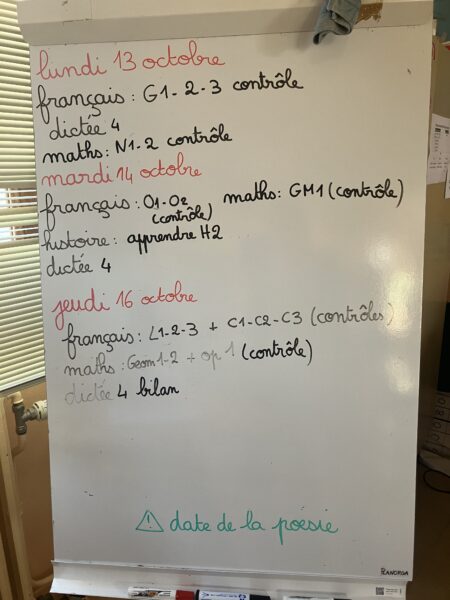 lundi 13 octobre
français : G1- 2 - 3 contrôle
dictée 4
maths : N1-2 contrôle
mardi 14 octobre
français : O1-O2 maths : GM1 (contrôle)
(contrôle)
histoire : apprendre H2
dictée 4
jeudi 16 octobre
français : L1-2-3 + C1-C2-C3 (contrôles)
maths : Geom 1-2 + op 1 (contrôle)
dictée 4 bilan
⚠ date de la poésie
PLANORGA